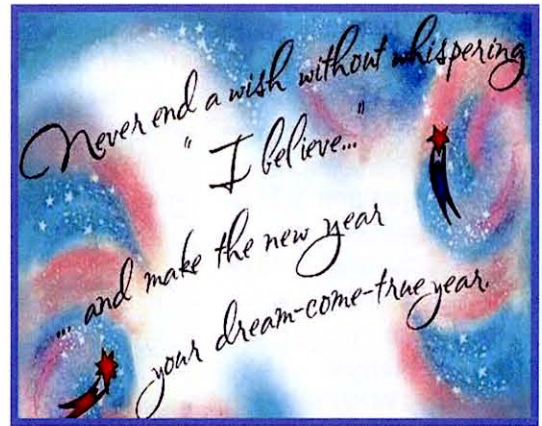 Never end a wish without whispering
"I believe..."
... and make the new year
your dream-come-true year.